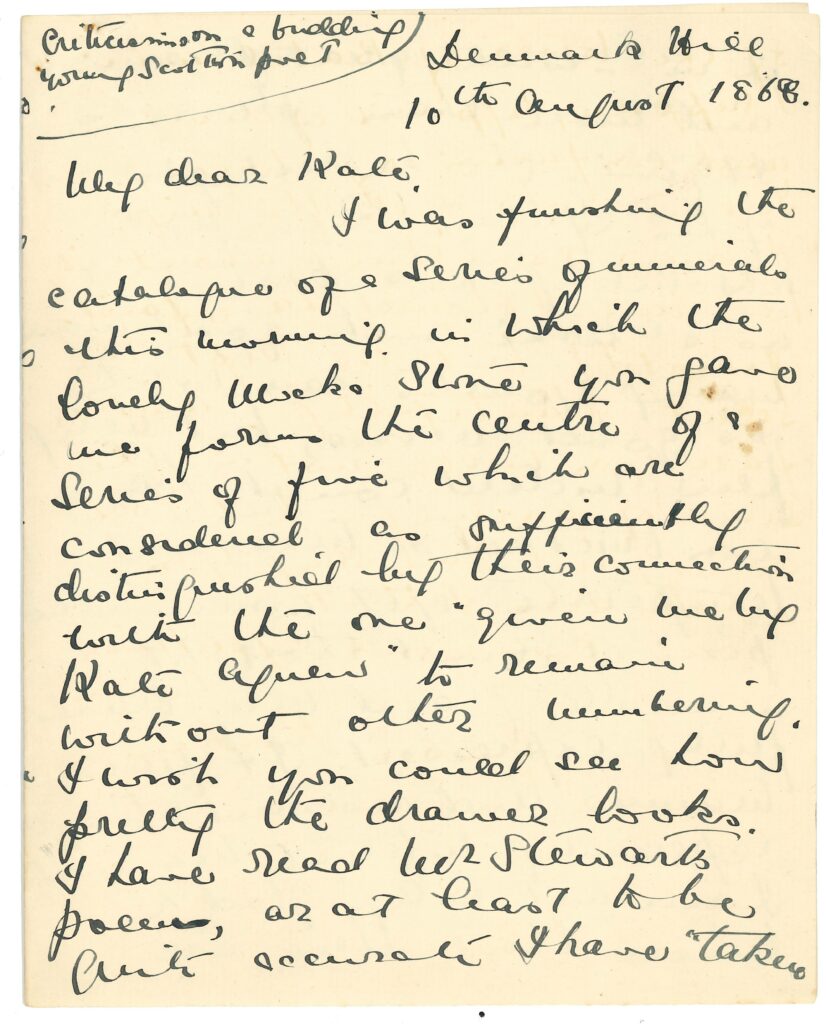 Criticism on a budding
young Scottish poet
Denmark Hill
10th August 1868.
My dear Kate
I was finishing the
catalogue of a series of minerals
this morning, in which the
lovely Mocha Stone you gave
me forms the centre of a
series of five which are
considered as sufficiently
distinguished by their connection
with the one "given me by
Kate Agnew" to remain
without other numbering.
I wish you could see how
pretty the drawer looks.
I have read Mr Stewarts
poems, or at least to be
quite accurate I have "taken